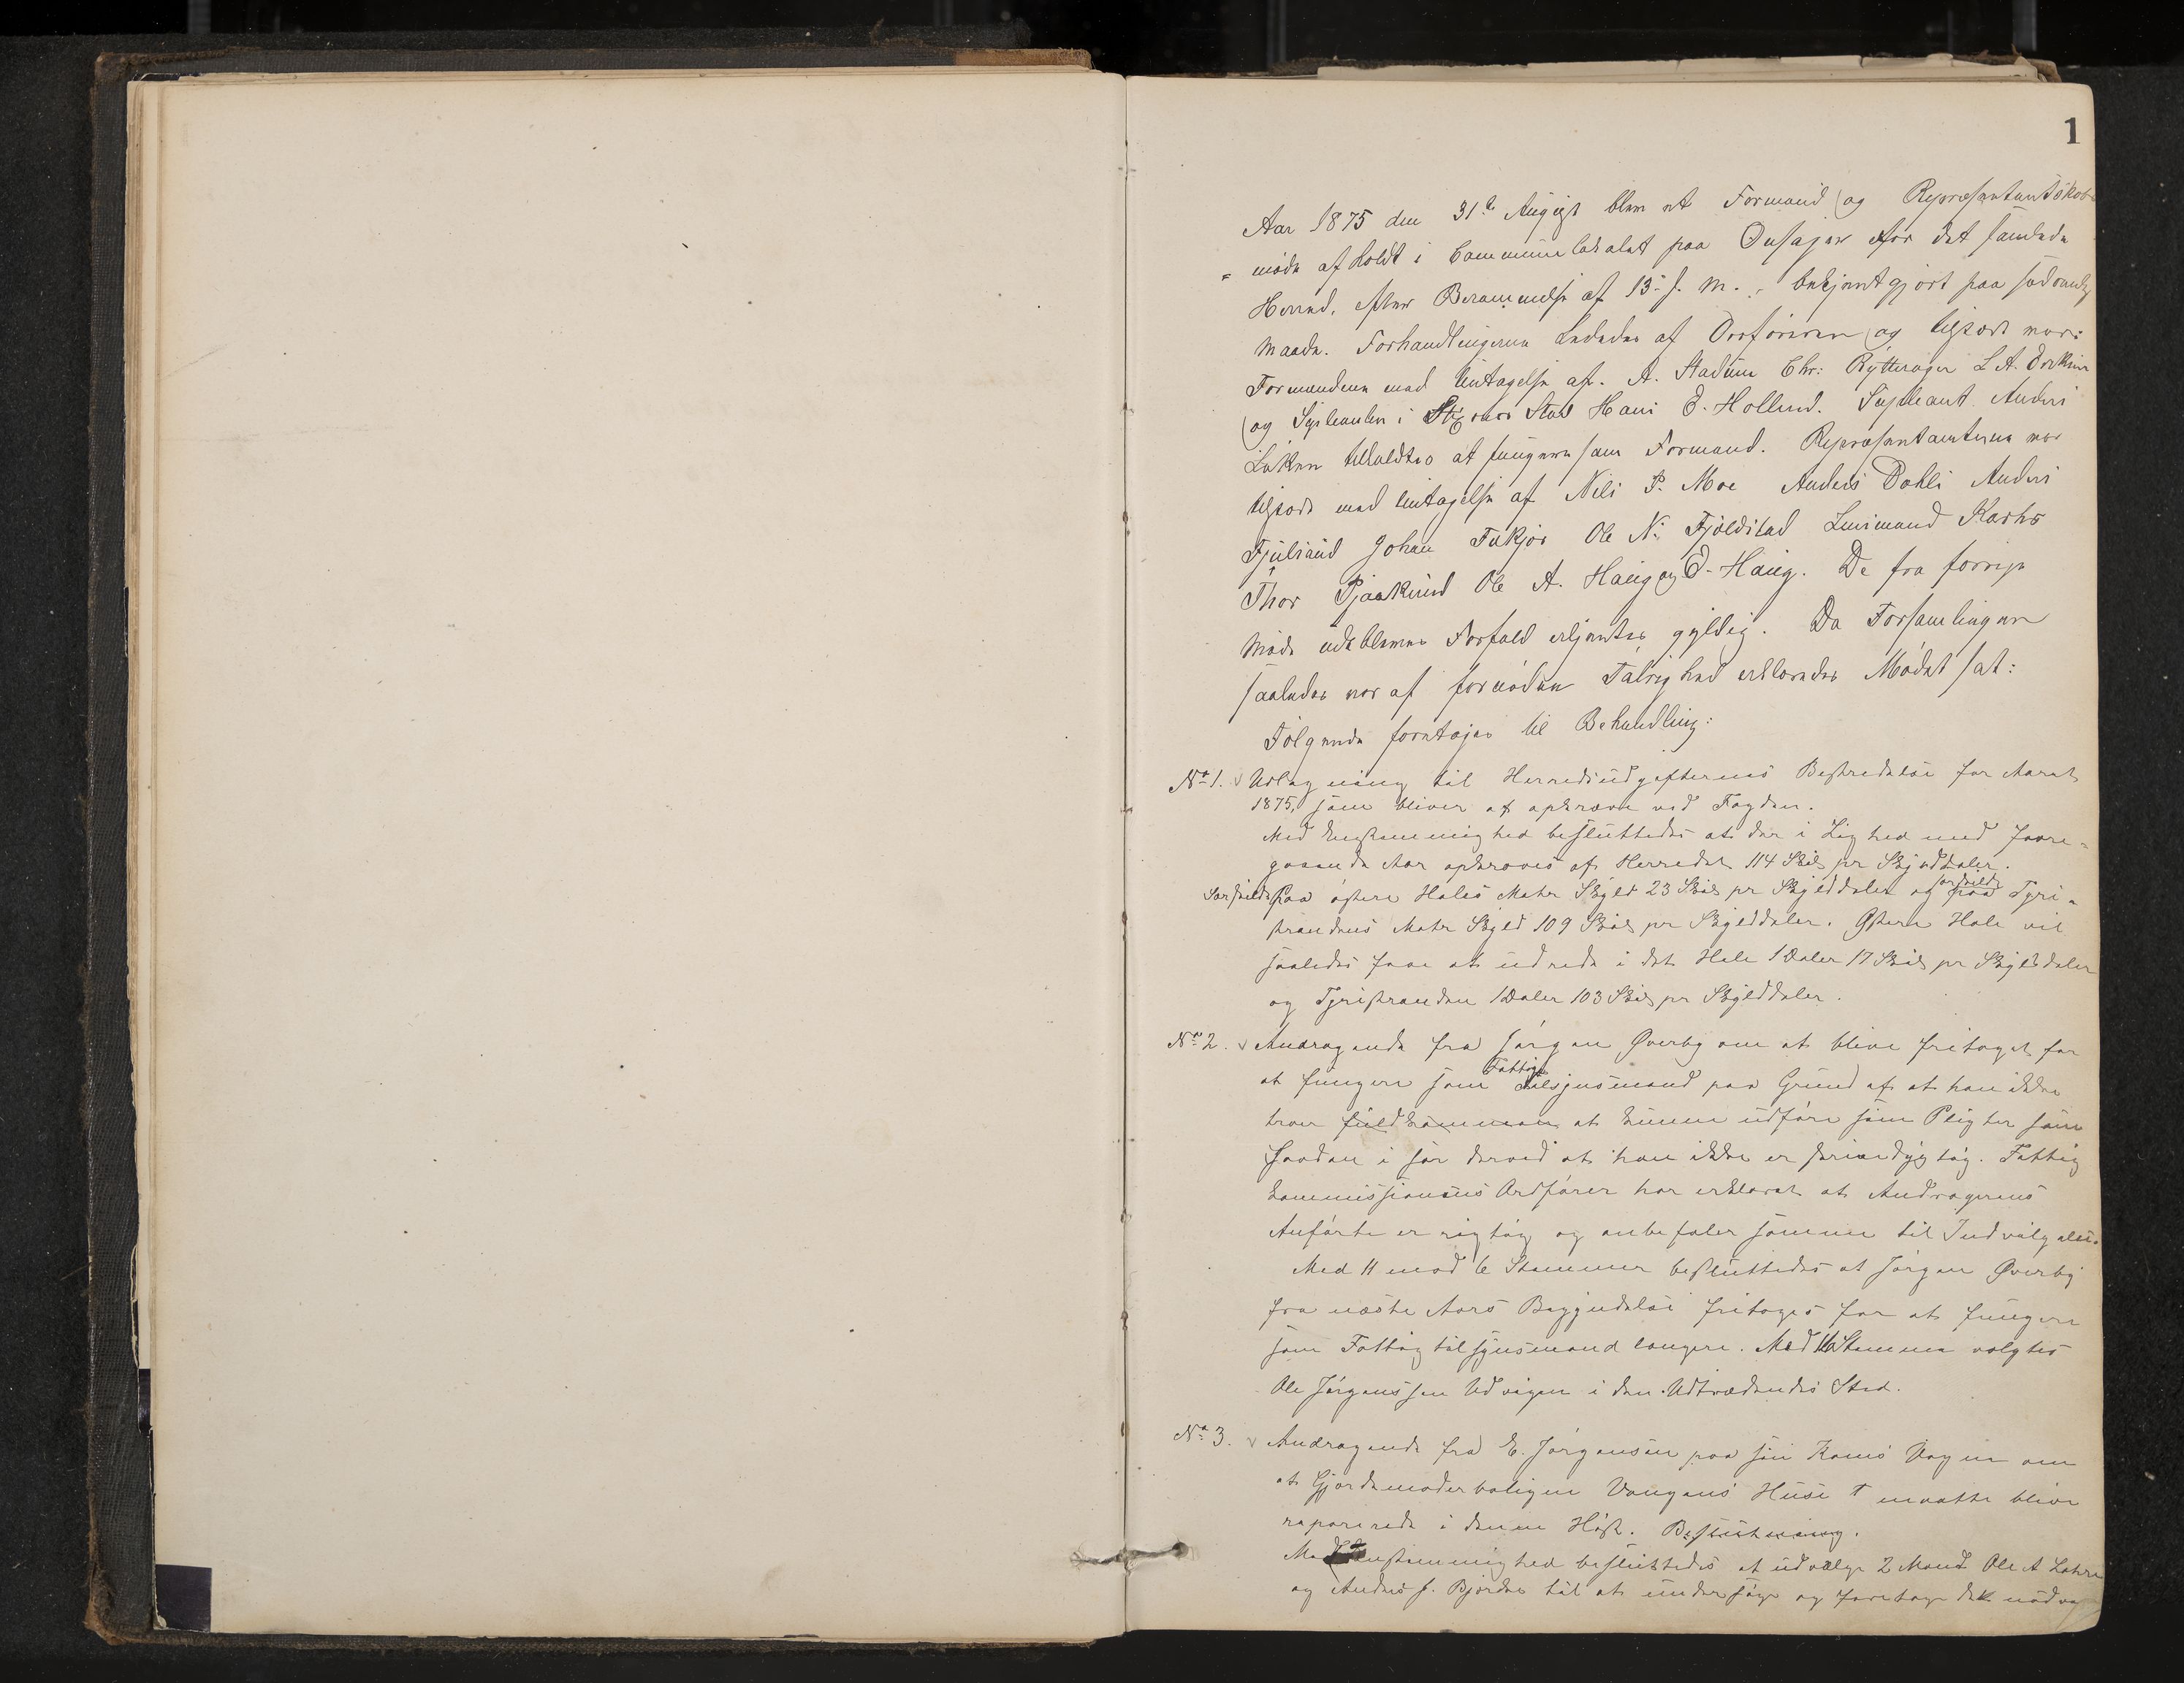 1
Aar 1875 den 31te August blev et Formand og Repræsentantskabs
= møde afholdt i Communelokalet paa for det samlede
Herred, efter Berammelse af 13. f. M. - bekjentgjort paa sædvanlig
Maade. Forhandlingerne lededes af Ordføreren og tilstede var:
Formændene med Untagelse af. A. Stadum Chr: Rytterager L A.
og Supleanten i Hans O. Hollerud. Supleant Anders
Løken tilkaldtes at fungere som Formand. Repræsentanterne var
tilstede med Untagelse af Nils P. Moe Anders Dahli Anders
Fjulsrud Johan Ole N. Fjeldstad Lensmand
Thor Pjaakerud Ole A. Haug og O. Haug. De fra forrige
Møde udeblevne Forfald erkjentes gyldig. Da Forsamlingen
saaledes var af fornøden Talrighed erklæredes Mødet sat:
Følgende foretages til Behandling:
No 1. Udligning til Herredsudgifternes Bestridelse for Aaret
1875, som bliver at opkræve ved Fogden.
Med Enstemmighed besluttedes at der i Lighed med fore-
gaaende Aar opkræves af Herredet 114 Skil pr Skylddaler.
Særskildt Paa østere Holes Matr Skyld 23 Skil pr Skylddaler og særskildt paa Tyri-
strandens Matr Skyld 109 Skil pr Skylddaler. Østere Hole vil
saaledes faae at udrede i det Hele 1 Daler 17 Skil pr Skylddaler
og Tyristranden 1 Daler 103 Skil pr Skylddaler.
No 2. Andragende fra Jørgen Øverby om at blive fritaget for
at fungere som Fattig Tilsynsmand paa Grund af at han ikke
troer fuldkommen at kunne udføre sine Pligter som
saadan i sær derved at han ikke er skrivedygtig. Fattig
kommissionens Ordfører har erklæret at Andragerens
Anførte er rigtig og anbefaler samme til Indvilgelse.
Med 11 mod 6 Stemmer besluttedes at Jørgen Øverby
fra næste Aars Begyndelse fritages for at fungere
som Fattigtilsynsmand længere. Med 16 Stemmer valgtes
Ole Jørgenssen Udvigen i den Udtrædendes Sted.
No 3. Andragende fra E. Jørgensen paa sin Kones Vegne om
at Gjordemoderboligen Vangens Huse maatte blive
reparerede i denne Høst. Beslutning.
Med Enstemmighed besluttedes at udvælge 2 Mænd Ole A
og Anders J. Bjørke til at undersøge og foretage det nødven